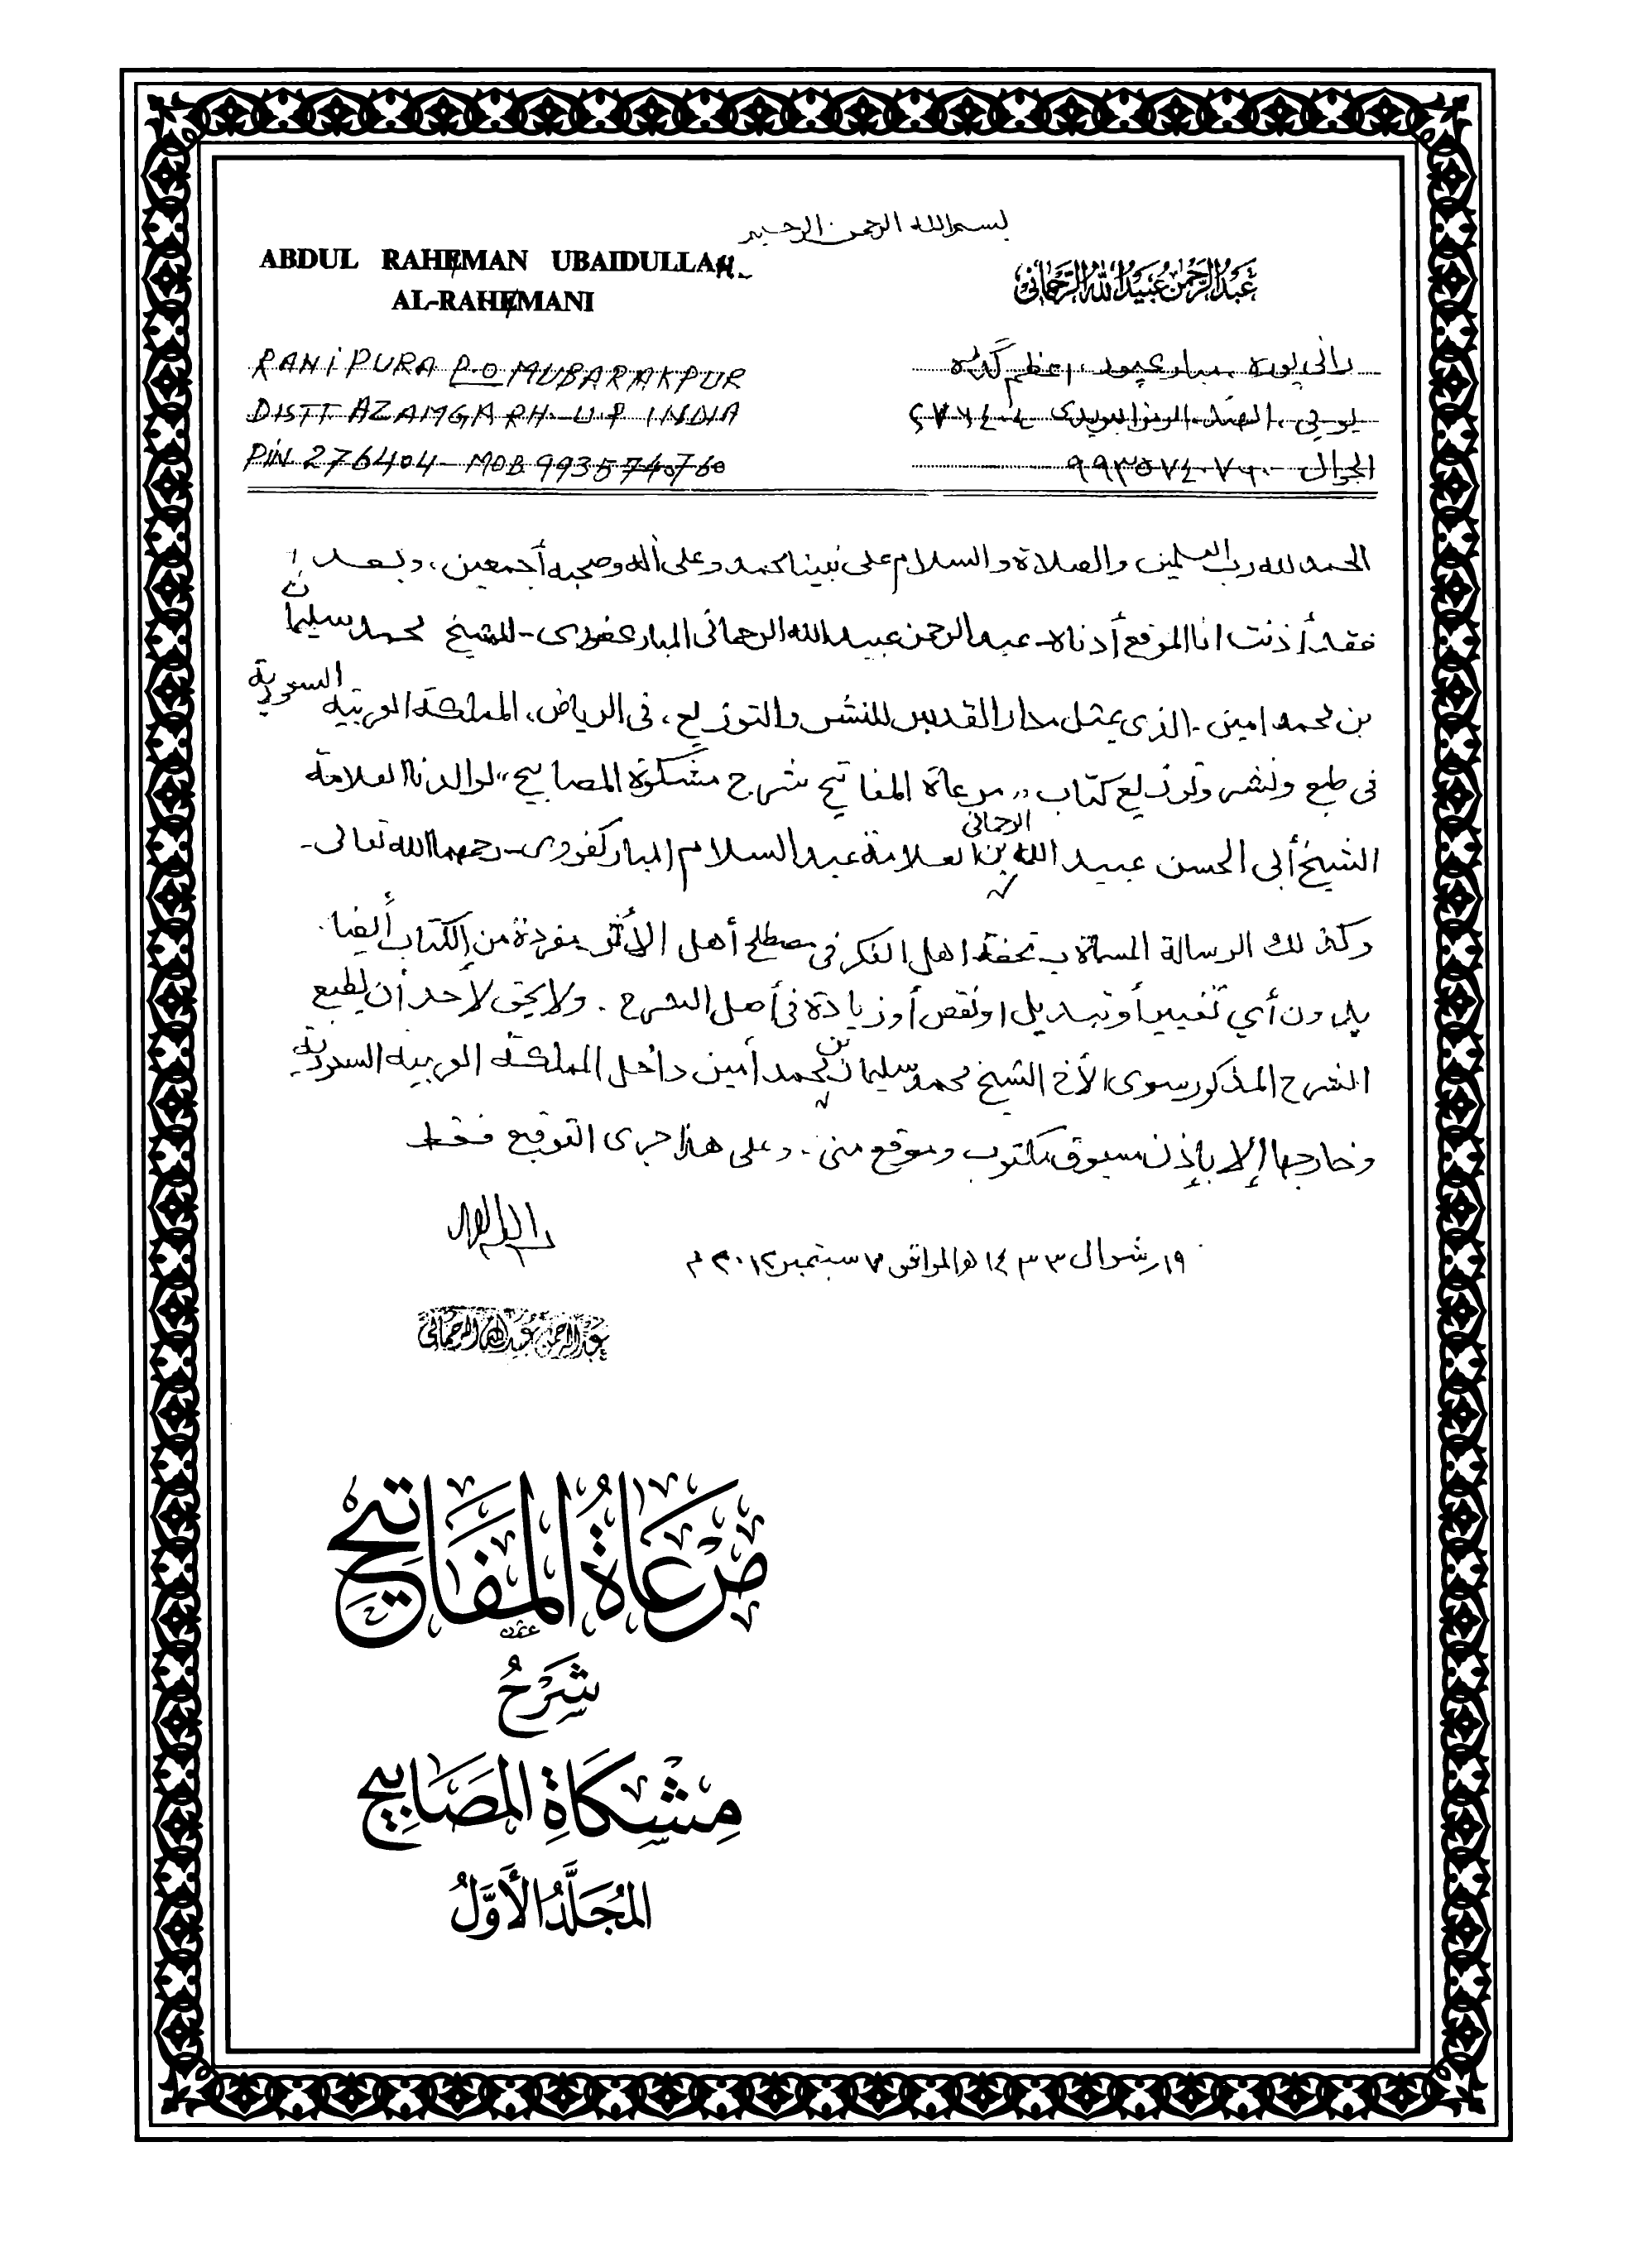 بسم الله الرحمن الرحيم
ABDUL RAHEMAN UBAIDULLAH
AL-RAHEMANI
عبد الرحمن عبيد الله الرحماني
RANIPURA P.O MUBARAKPUR
DISTT AZAMGARH - U.P INDIA
PIN 276404 - MOB 9935740760
راني پوره، مباركپور، اعظم گڑھ
يوبي، الهند، الرمز البريدى ٢٧٦٤٠٤
الجوال ٩٩٣٥٧٤٠٧٦٠
الحمد لله رب العلمين والصلاة والسلام على نبينا محمد وعلى آله وصحبه أجمعين، وبعد!
فقد أذنت انا الموقع أدناه - عبد الرحمن عبيد الله الرحماني المباركفورى - للشيخ محمد سليمان
بن محمد امين - الذى يمثل دار القبس للنشر والتوزيع، فى الرياض، المملكة العربية السعودية
فى طبع ونشر وتوزيع كتاب "مرعاة المفاتيح شرح مشكوة المصابيح" لوالدنا العلامة
الشيخ أبى الحسن عبيد الله الرحمانى بن العلامة عبد السلام المباركفورى - رحمهما الله تعالى -
وكذلك الرسالة المسماة ب تحفة اهل الفكر فى مصطلح أهل الأثر مفردة من الكتاب أيضا.
بدون أي تغيير أو تبديل او نقص أو زيادة فى أصل الشرح. ولا يحق لأحد أن يطبع
الشرح المذكور سوى الأخ الشيخ محمد سليمان بن محمد أمين داخل المملكة العربية السعودية
وخارجها إلا بإذن مسبوق مكتوب وموقع منى. وعلى هذا جرى التوقيع فقط
١٩/ شوال ١٤٣٣ ه الموافق ٧ سبتمبر ٢٠١٢ م
عبد الرحمن عبيد الله الرحماني
مِرْعَاةُ المَفَاتِيحِ
شَرْحُ
مِشْكَاةِ المَصَابِيحِ
المُجَلَّدُ الأَوَّلُ